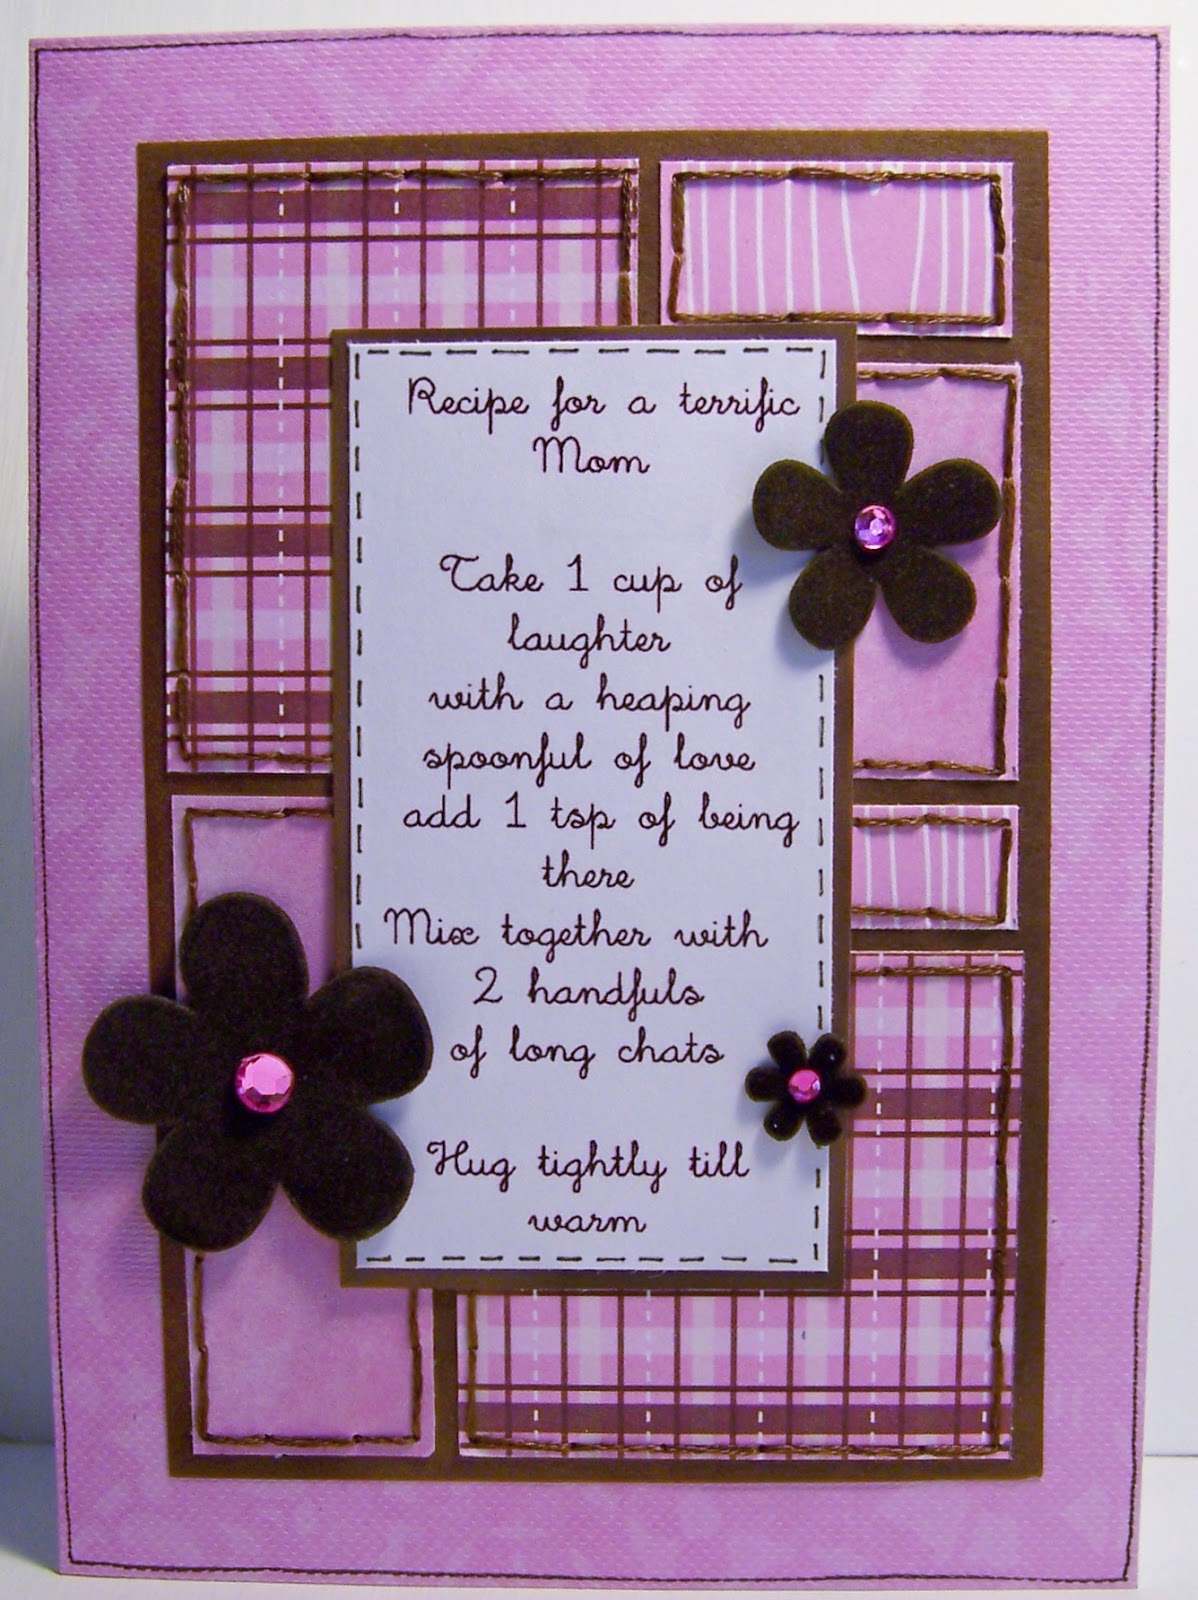 Recipe for a terrific
Mom
Take 1 cup of
laughter
with a heaping
spoonful of love
add 1 tsp of being
there
Mix together with
2 handfuls
of long chats
Hug tightly till
warm